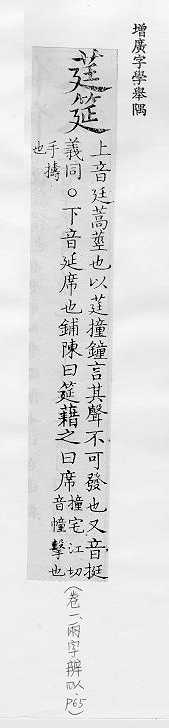 增廣字學舉隅
莛筵
上音廷蒿莖也以莛撞鐘言其聲不可發也又音挺
義同。下音延席也鋪陳曰筵藉之曰席
撞宅江切
音憧擊也
手擣
也
(卷二、兩字辨似、P65)